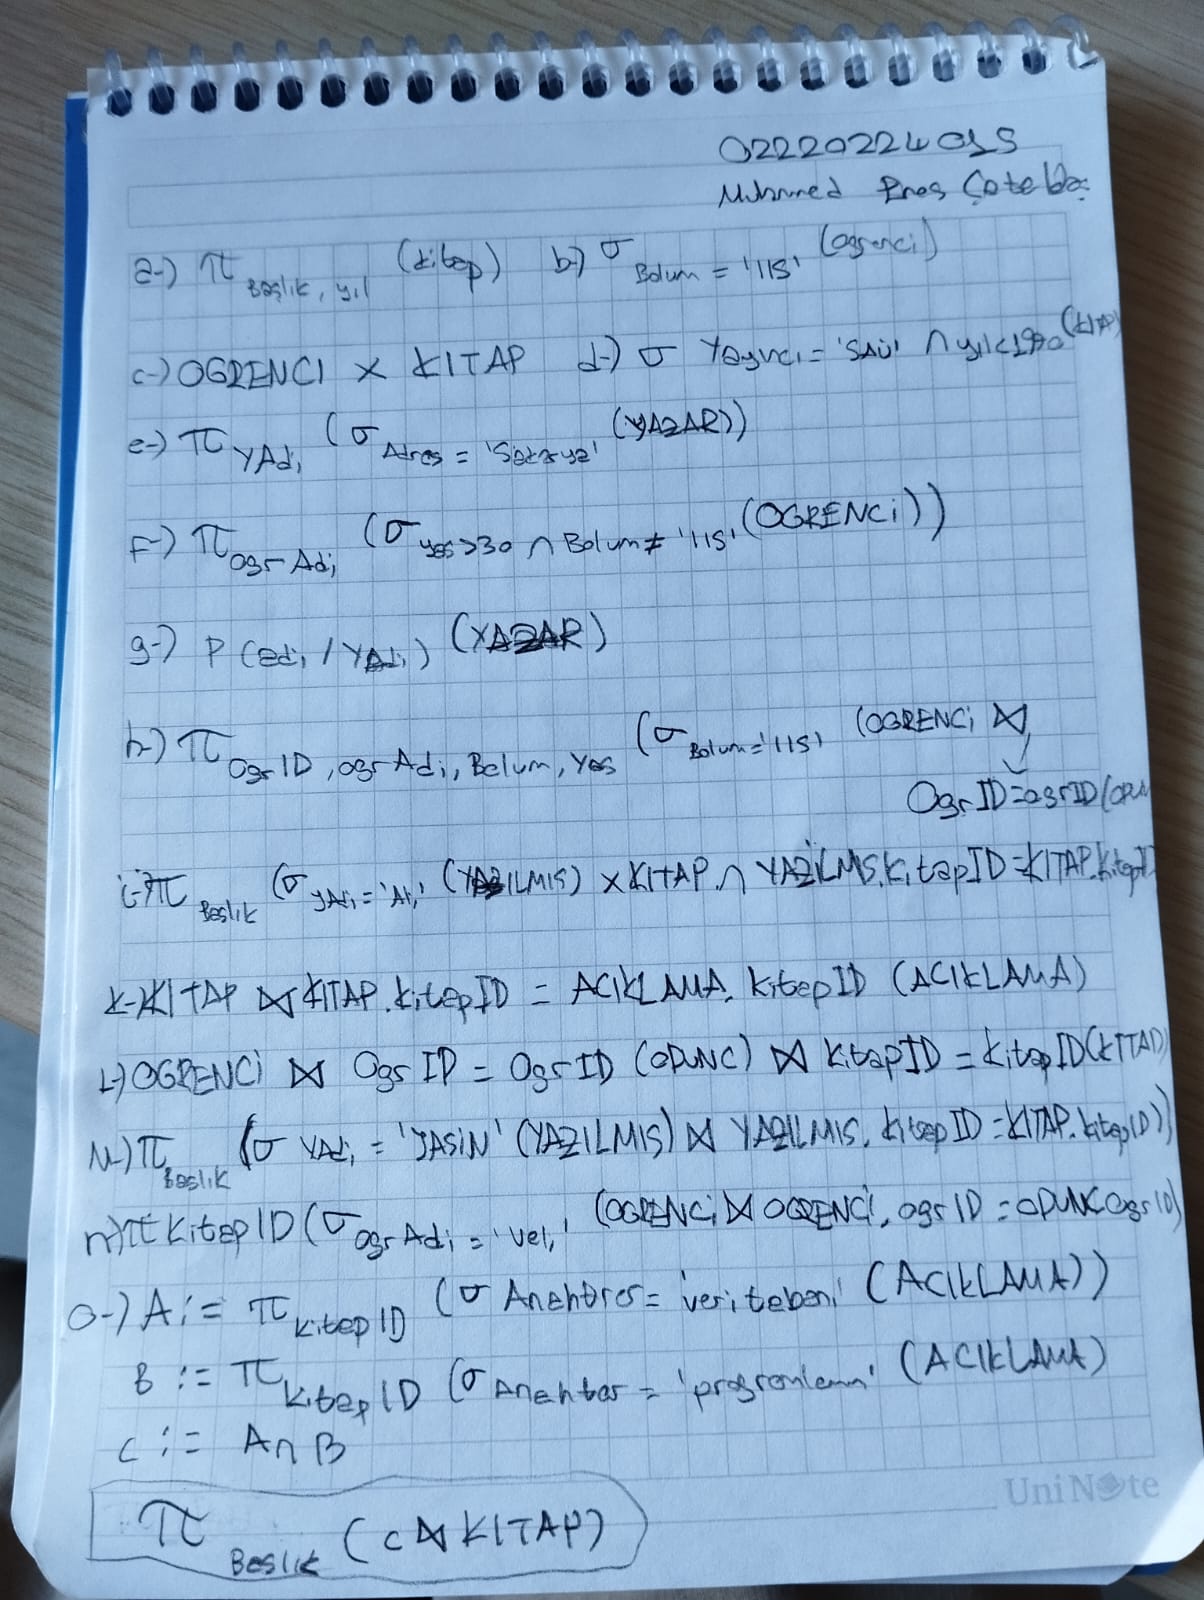 02220224015
Muhammed Enes Çatalba
a-) π Başlık, yıl (kitap) b-) σ Bolum = 'IIS' (ogrenci)
c-) OGRENCI x KITAP d-) σ Yayıncı = 'SAÜ' ∩ yıl<1990 (KITAP)
e-) π YAdı (σ Adres = 'Sakarya' (YAZAR))
F-) π ogr Adi (σ yas>30 ∩ Bolum ≠ 'IIS' (OGRENCi))
g-) P (adı / YAdı) (YAZAR)
h-) π OgrID, ogr Adi, Bolum, Yas (σ Bolum='IIS' (OGRENCi ⋈
OgrID=ogrID (OPUN
i-) π Baslık (σ YAdı = 'Ali' (YAZILMIS) x KITAP ∩ YAZILMIS.KitapID = KITAP.kitapID
k-) KITAP ⋈ KITAP.kitapID = ACIKLAMA.kitapID (ACIKLAMA)
L-) OGRENCi ⋈ OgrID = OgrID (OPUNC) ⋈ KitapID = KitapID (KITAP)
M-) π Baslık (σ YAdı = 'YASiN' (YAZILMIS) ⋈ YAZILMIS.kitapID = KITAP.kitapID))
n-) π KitapID (σ ogr Adi = 'Veli' (OGRENCi ⋈ OGRENCi.ogrID = OPUNC.OgrID)
O-) A := π KitapID (σ Anahtar = 'veritabanı' (ACIKLAMA))
B := π KitapID (σ Anahtar = 'programlama' (ACIKLAMA)
C := A ∩ B
UniNote
π Baslık (C ⋈ KITAP)